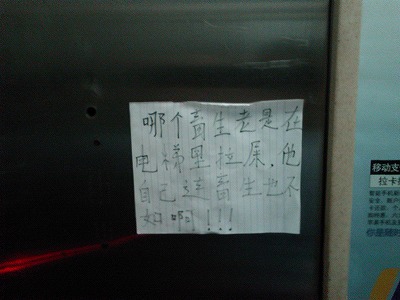 哪个畜生老是在
电梯里拉屎，他
自己连畜生也不
如啊！！！
移动支
拉卡